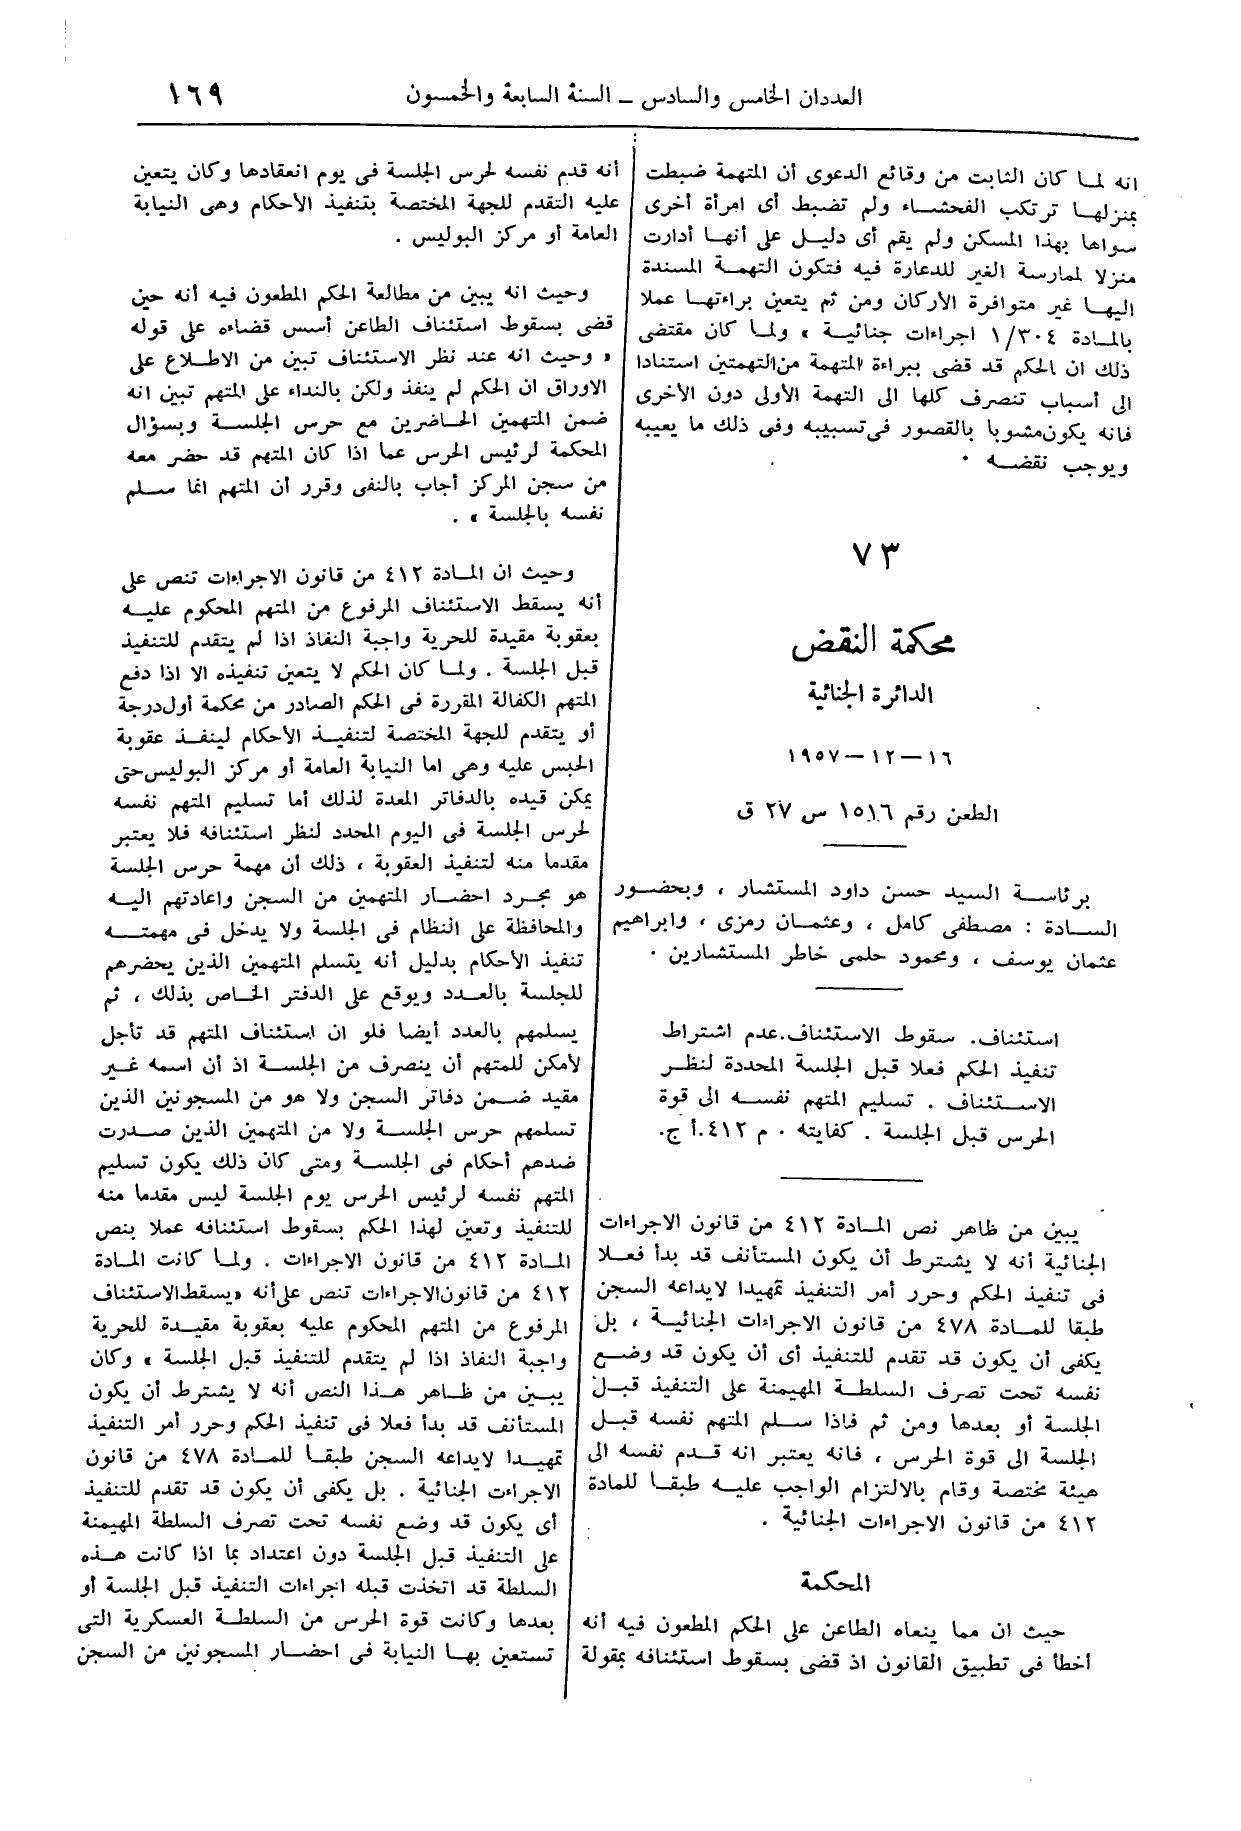 العددان الخامس والسادس ــ السنة السابعة والخمسون
١٦٩
انه لما كان الثابت من وقائع الدعوى أن المتهمة ضبطت
بمنزلها ترتكب الفحشاء ولم تضبط أى امرأة أخرى
سواها بهذا المسكن ولم يقم أى دليل على أنها أدارت
منزلا لممارسة الغير للدعارة فيه فتكون التهمة المسندة
اليها غير متوافرة الأركان ومن ثم يتعين براءتها عملا
بالمادة ١/٣٠٤ اجراءات جنائية » ولما كان مقتضى
ذلك ان الحكم قد قضى ببراءة المتهمة من التهمتين استنادا
الى أسباب تنصرف كلها الى التهمة الأولى دون الأخرى
فانه يكون مشوبا بالقصور فى تسبيبه وفى ذلك ما يعيبه
ويوجب نقضه .
٧٣
محكمة النقض
الدائرة الجنائية
١٦ – ١٢ – ١٩٥٧
الطعن رقم ١٥١٦ س ٢٧ ق
برئاسة السيد حسن داود المستشار ، وبحضور
السادة : مصطفى كامل ، وعثمان رمزى ، وابراهيم
عثمان يوسف ، ومحمود حلمى خاطر المستشارين .
استئناف. سقوط الاستئناف.عدم اشتراط
تنفيذ الحكم فعلا قبل الجلسة المحددة لنظر
الاستئناف . تسليم المتهم نفسه الى قوة
الحرس قبل الجلسة . كفايته . م ٤١٢.أ ج.
يبين من ظاهر نص المادة ٤١٢ من قانون الاجراءات
الجنائية أنه لا يشترط أن يكون المستأنف قد بدأ فعلا
فى تنفيذ الحكم وحرر أمر التنفيذ تمهيدا لايداعه السجن
طبقا للمادة ٤٧٨ من قانون الاجراءات الجنائية ، بل
يكفى أن يكون قد تقدم للتنفيذ أى أن يكون قد وضع
نفسه تحت تصرف السلطة المهيمنة على التنفيذ قبل
الجلسة أو بعدها ومن ثم فاذا سلم المتهم نفسه قبل
الجلسة الى قوة الحرس ، فانه يعتبر انه قدم نفسه الى
هيئة مختصة وقام بالالتزام الواجب عليه طبقا للمادة
٤١٢ من قانون الاجراءات الجنائية .
المحكمة
حيث ان مما ينعاه الطاعن على الحكم المطعون فيه أنه
أخطأ فى تطبيق القانون اذ قضى بسقوط استئنافه بمقولة
أنه قدم نفسه لحرس الجلسة فى يوم انعقادها وكان يتعين
عليه التقدم للجهة المختصة بتنفيذ الأحكام وهى النيابة
العامة أو مركز البوليس .
وحيث انه يبين من مطالعة الحكم المطعون فيه أنه حين
قضى بسقوط استئناف الطاعن أسس قضاءه على قوله
« وحيث انه عند نظر الاستئناف تبين من الاطلاع على
الاوراق ان الحكم لم ينفذ ولكن بالنداء على المتهم تبين انه
ضمن المتهمين الحاضرين مع حرس الجلسة وبسؤال
المحكمة لرئيس الحرس عما اذا كان المتهم قد حضر معه
من سجن المركز أجاب بالنفى وقرر أن المتهم انما سلم
نفسه بالجلسة » .
وحيث ان المادة ٤١٢ من قانون الاجراءات تنص على
أنه يسقط الاستئناف المرفوع من المتهم المحكوم عليه
بعقوبة مقيدة للحرية واجبة النفاذ اذا لم يتقدم للتنفيذ
قبل الجلسة . ولما كان الحكم لا يتعين تنفيذه الا اذا دفع
المتهم الكفالة المقررة فى الحكم الصادر من محكمة أول درجة
أو يتقدم للجهة المختصة لتنفيذ الأحكام لينفذ عقوبة
الحبس عليه وهى اما النيابة العامة أو مركز البوليس حتى
يمكن قيده بالدفاتر المعدة لذلك أما تسليم المتهم نفسه
لحرس الجلسة فى اليوم المحدد لنظر استئنافه فلا يعتبر
مقدما منه لتنفيذ العقوبة ، ذلك أن مهمة حرس الجلسة
هو مجرد احضار المتهمين من السجن واعادتهم اليه
والمحافظة على النظام فى الجلسة ولا يدخل فى مهمته
تنفيذ الأحكام بدليل أنه يتسلم المتهمين الذين يحضرهم
للجلسة بالعدد ويوقع على الدفتر الخاص بذلك ، ثم
يسلمهم بالعدد أيضا فلو ان استئناف المتهم قد تأجل
لأمكن للمتهم أن ينصرف من الجلسة اذ أن اسمه غير
مقيد ضمن دفاتر السجن ولا هو من المسجونين الذين
تسلمهم حرس الجلسة ولا من المتهمين الذين صدرت
ضدهم أحكام فى الجلسة ومتى كان ذلك يكون تسليم
المتهم نفسه لرئيس الحرس يوم الجلسة ليس مقدما منه
للتنفيذ وتعين لهذا الحكم بسقوط استئنافه عملا بنص
المادة ٤١٢ من قانون الاجراءات . ولما كانت المادة
٤١٢ من قانون الاجراءات تنص على أنه «يسقط الاستئناف
المرفوع من المتهم المحكوم عليه بعقوبة مقيدة للحرية
واجبة النفاذ اذا لم يتقدم للتنفيذ قبل الجلسة » وكان
يبين من ظاهر هذا النص أنه لا يشترط أن يكون
المستأنف قد بدأ فعلا فى تنفيذ الحكم وحرر أمر التنفيذ
تمهيدا لايداعه السجن طبقا للمادة ٤٧٨ من قانون
الاجراءت الجنائية . بل يكفى أن يكون قد تقدم للتنفيذ
أى يكون قد وضع نفسه تحت تصرف السلطة المهيمنة
على التنفيذ قبل الجلسة دون اعتداد بما اذا كانت هذه
السلطة قد اتخذت قبله اجراءات التنفيذ قبل الجلسة أو
بعدها وكانت قوة الحرس من السلطة العسكرية التى
تستعين بها النيابة فى احضار المسجونين من السجن